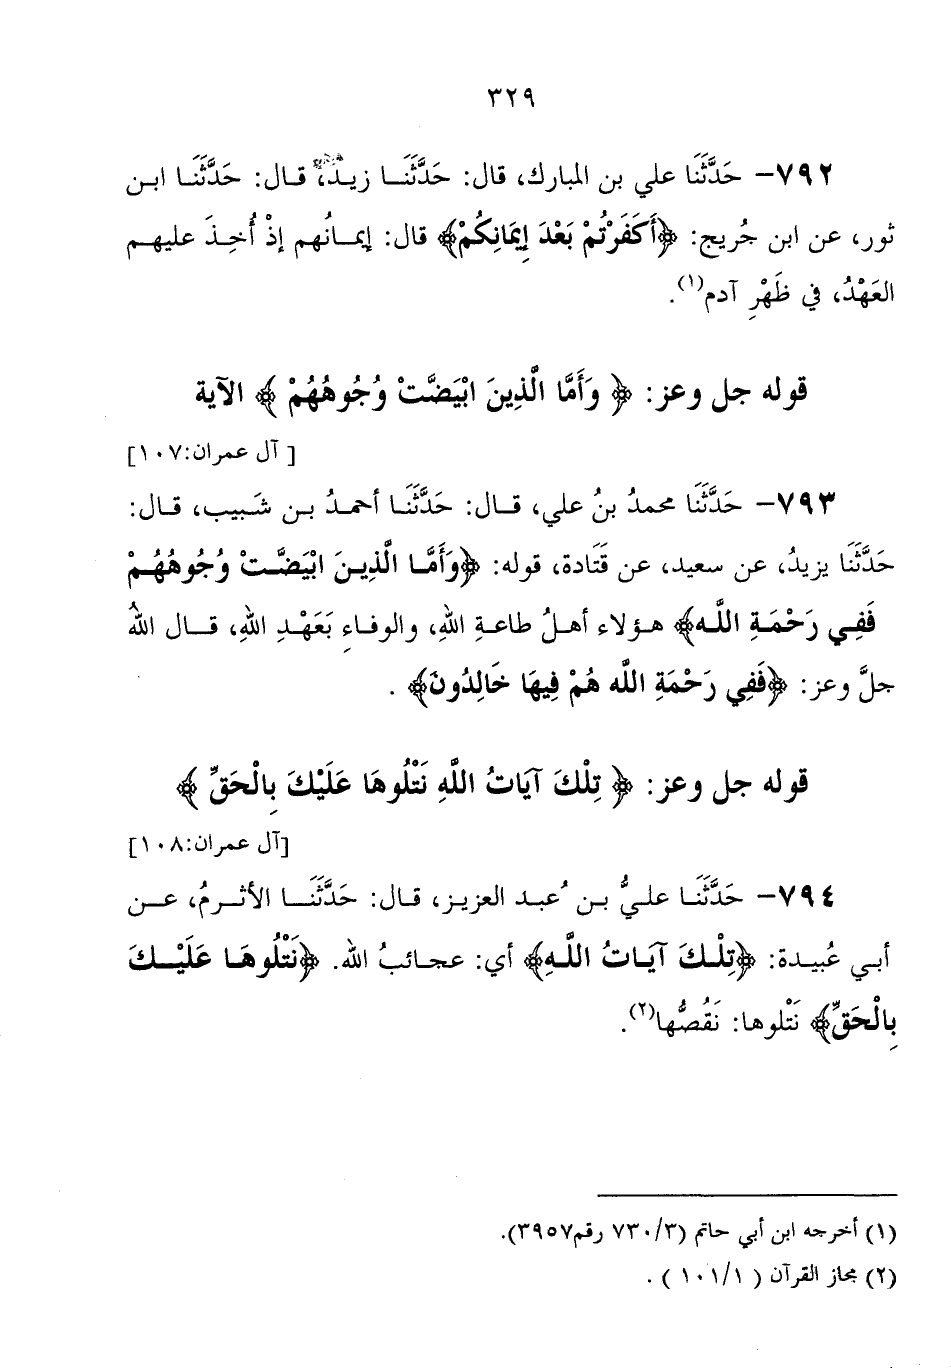 ٣٢٩
٧٩٢- حَدَّثَنَا علي بن المبارك، قال: حَدَّثَنَـا زيـدٌ، قـال: حَدَّثَنَـا ابـن
ثور، عن ابن جُريج: ﴿أَكَفَرْتُمْ بَعْدَ إِيمَانِكُمْ﴾ قال: إيمـانُهم إذْ أُخِـذَ عليهـم
العَهْدُ، في ظَهْرِ آدم(١).
قوله جل وعز: ﴿ وَأَمَّا الَّذِينَ ابْيَضَّتْ وُجُوهُهُمْ ﴾ الآية
[ آل عمران:١٠٧]
٧٩٣- حَدَّثَنَا محمدُ بنُ علي، قـال: حَدَّثَنَـا أحمـدُ بـن شَـبيب، قـال:
حَدَّثَنَا يزيدُ، عن سعيد، عن قَتَادة، قوله: ﴿وَأَمَّـا الَّذِيـنَ ابْيَضَّـتْ وُجُوهُهُـمْ
فَفِي رَحْمَـةِ اللَّـه﴾ هـؤلاء أهـلُ طاعـةِ اللهِ، والوفـاءِ بَعَهْـدِ اللهِ، قـال اللهُ
جلَّ وعز: ﴿فَفِي رَحْمَةِ اللَّه هُمْ فِيهَا خَالِدُونَ﴾ .
قوله جل وعز: ﴿ تِلْكَ آيَاتُ اللَّهِ نَتْلُوهَا عَلَيْكَ بِالْحَقِّ ﴾
[آل عمران:١٠٨]
٧٩٤- حَدَّثَنَـا علـيُّ بـن عُبـد العزيـز، قـال: حَدَّثَنَـا الأثـرمُ، عـن
أبـي عُبيـدة: ﴿تِلْـكَ آيَـاتُ اللَّـهِ﴾ أي: عجـائبُ الله. ﴿نَتْلُوهَـا عَلَيْـكَ
بِالْحَقِّ﴾ نَتْلوها: نَقُصُّها(٢).
(١) أخرجه ابن أبي حاتم (٧٣٠/٣ رقم٣٩٥٧).
(٢) مجاز القرآن ( ١٠١/١ ) .